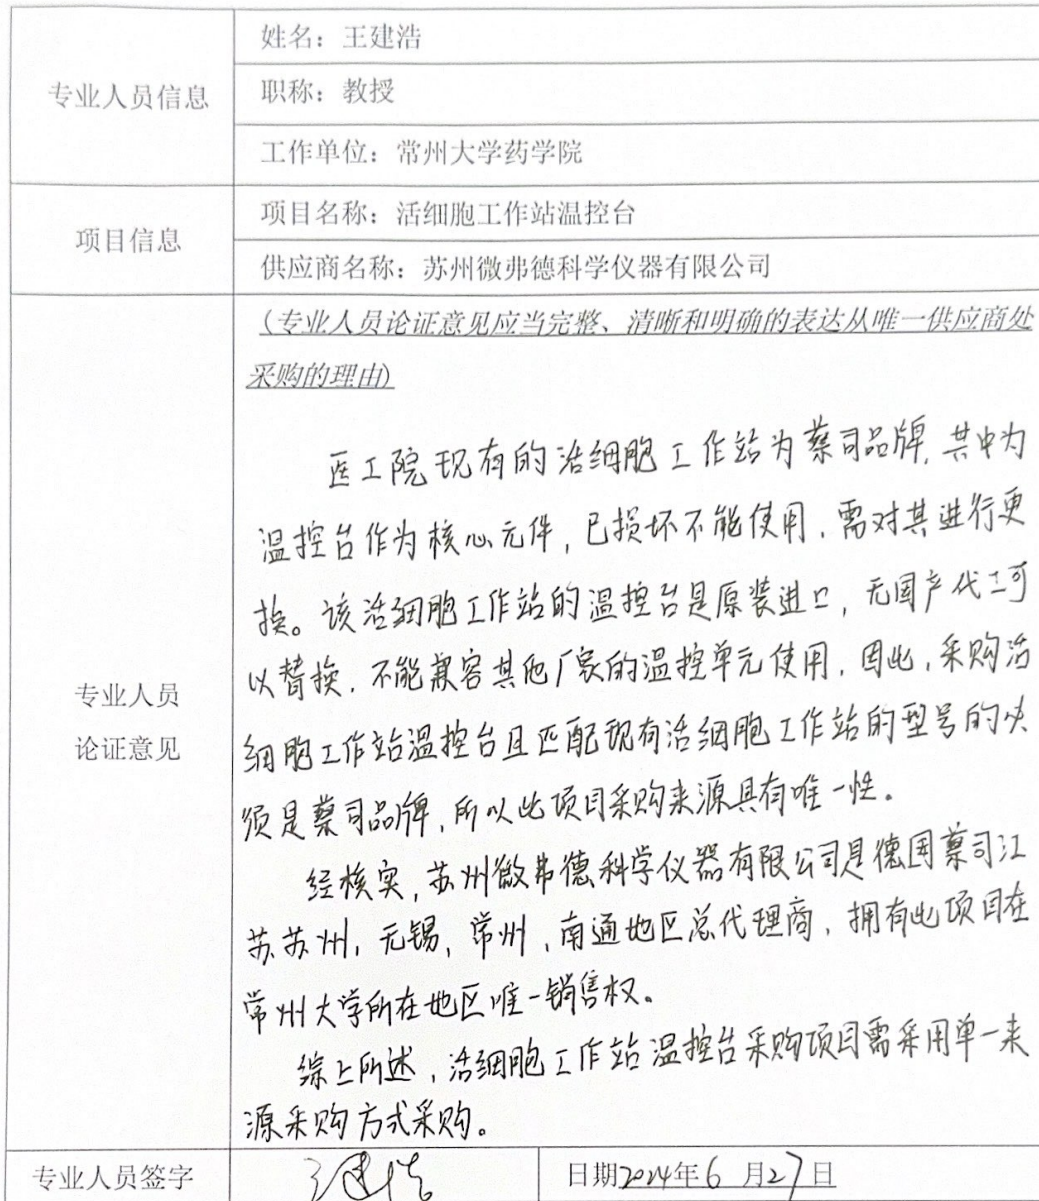 专业人员信息
姓名：王建浩
职称：教授
工作单位：常州大学药学院
项目信息
项目名称：活细胞工作站温控台
供应商名称：苏州微弗德科学仪器有限公司
专业人员
论证意见
（专业人员论证意见应当完整、清晰和明确的表达从唯一供应商处
采购的理由）
医工院现有的活细胞工作站为蔡司品牌，其中为
温控台作为核心元件，已损坏不能使用，需对其进行更
换。该活细胞工作站的温控台是原装进口，无国产代工可
以替换，不能兼容其他厂家的温控单元使用，因此，采购活
细胞工作站温控台且匹配现有活细胞工作站的型号的必
须是蔡司品牌，所以此项目采购来源具有唯一性。
经核实，苏州微弗德科学仪器有限公司是德国蔡司江
苏苏州，无锡，常州，南通地区总代理商，拥有此项目在
常州大学所在地区唯一销售权。
综上所述，活细胞工作站温控台采购项目需采用单一来
源采购方式采购。
专业人员签字
王建浩
日期2024年6月27日